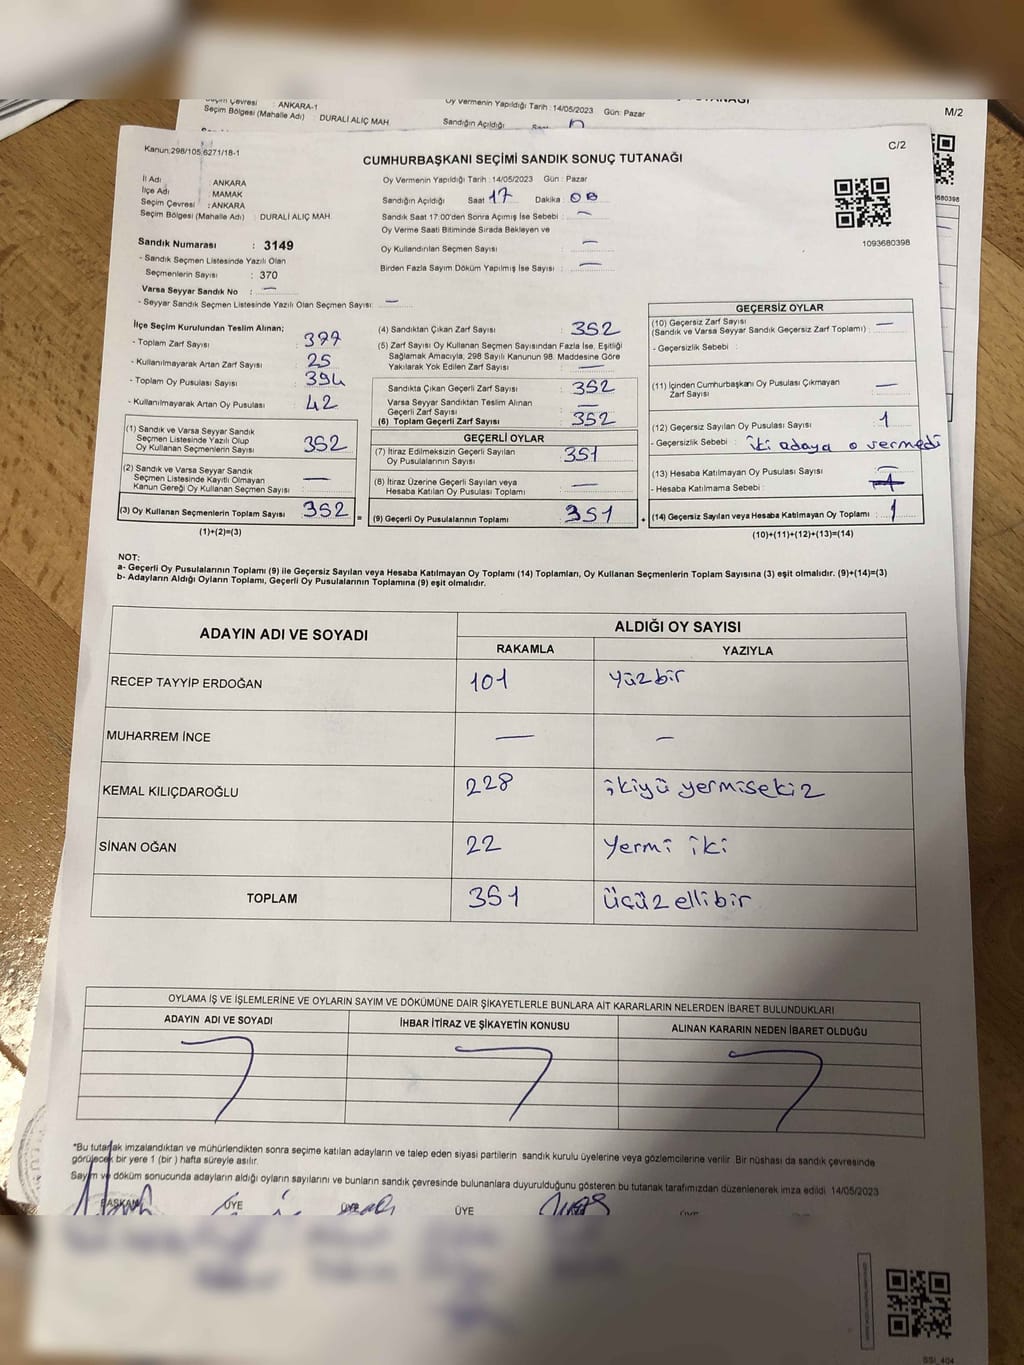 Seçim Çevresi : ANKARA-1
Oy Vermenin Yapıldığı Tarih : 14/05/2023 Gün: Pazar
Seçim Bölgesi (Mahalle Adı) : DURALİ ALIÇ MAH.
Sandığın Açıldığı
M/2
Kanun:298/105,6271/18-1
C/2
CUMHURBAŞKANI SEÇİMİ SANDIK SONUÇ TUTANAĞI
İl Adı : ANKARA
İlçe Adı : MAMAK
Seçim Çevresi : ANKARA
Seçim Bölgesi (Mahalle Adı) : DURALİ ALIÇ MAH.
Oy Vermenin Yapıldığı Tarih : 14/05/2023 Gün : Pazar
Sandığın Açıldığı Saat 17 Dakika : 08
Sandık Saat 17:00'den Sonra Açımış İse Sebebi : —
Oy Verme Saati Bitiminde Sırada Bekleyen ve
Oy Kullandırılan Seçmen Sayısı : —
Birden Fazla Sayım Döküm Yapılmış İse Sayısı : —
1093680398
Sandık Numarası : 3149
- Sandık Seçmen Listesinde Yazılı Olan
Seçmenlerin Sayısı : 370
Varsa Seyyar Sandık No : —
- Seyyar Sandık Seçmen Listesinde Yazılı Olan Seçmen Sayısı: —
İlçe Seçim Kurulundan Teslim Alınan;
- Toplam Zarf Sayısı : 377
- Kullanılmayarak Artan Zarf Sayısı : 25
- Toplam Oy Pusulası Sayısı : 394
- Kullanılmayarak Artan Oy Pusulası : 42
(1) Sandık ve Varsa Seyyar Sandık
Seçmen Listesinde Yazılı Olup
Oy Kullanan Seçmenlerin Sayısı : 352
(2) Sandık ve Varsa Seyyar Sandık
Seçmen Listesinde Kayıtlı Olmayan
Kanun Gereği Oy Kullanan Seçmen Sayısı : —
(3) Oy Kullanan Seçmenlerin Toplam Sayısı : 352
(1)+(2)=(3)
(4) Sandıktan Çıkan Zarf Sayısı : 352
(5) Zarf Sayısı Oy Kullanan Seçmen Sayısından Fazla İse, Eşitliği
Sağlamak Amacıyla, 298 Sayılı Kanunun 98. Maddesine Göre
Yakılarak Yok Edilen Zarf Sayısı : —
Sandıkta Çıkan Geçerli Zarf Sayısı : 352
Varsa Seyyar Sandıktan Teslim Alınan
Geçerli Zarf Sayısı : —
(6) Toplam Geçerli Zarf Sayısı : 352
GEÇERLİ OYLAR
(7) İtiraz Edilmeksizin Geçerli Sayılan
Oy Pusulalarının Sayısı : 351
(8) İtiraz Üzerine Geçerli Sayılan veya
Hesaba Katılan Oy Pusulası Toplamı : —
(9) Geçerli Oy Pusulalarının Toplamı : 351
GEÇERSİZ OYLAR
(10) Geçersiz Zarf Sayısı
(Sandık ve Varsa Seyyar Sandık Geçersiz Zarf Toplamı) : —
- Geçersizlik Sebebi :
(11) İçinden Cumhurbaşkanı Oy Pusulası Çıkmayan
Zarf Sayısı : —
(12) Geçersiz Sayılan Oy Pusulası Sayısı : 1
- Geçersizlik Sebebi : iki adaya o vermedi
(13) Hesaba Katılmayan Oy Pusulası Sayısı : —
- Hesaba Katılmama Sebebi :
(14) Geçersiz Sayılan veya Hesaba Katılmayan Oy Toplamı : 1
(10)+(11)+(12)+(13)=(14)
NOT:
a- Geçerli Oy Pusulalarının Toplamı (9) ile Geçersiz Sayılan veya Hesaba Katılmayan Oy Toplamı (14) Toplamları, Oy Kullanan Seçmenlerin Toplam Sayısına (3) eşit olmalıdır. (9)+(14)=(3)
b- Adayların Aldığı Oyların Toplamı, Geçerli Oy Pusulalarının Toplamına (9) eşit olmalıdır.
ADAYIN ADI VE SOYADI
ALDIĞI OY SAYISI
RAKAMLA YAZIYLA
RECEP TAYYİP ERDOĞAN 101 yüzbir
MUHARREM İNCE — —
KEMAL KILIÇDAROĞLU 228 ikiyü yermisekiz
SİNAN OĞAN 22 yermi iki
TOPLAM 351 üçüz ellibir
OYLAMA İŞ VE İŞLEMLERİNE VE OYLARIN SAYIM VE DÖKÜMÜNE DAİR ŞİKAYETLERLE BUNLARA AİT KARARLARIN NELERDEN İBARET BULUNDUKLARI
ADAYIN ADI VE SOYADI İHBAR İTİRAZ VE ŞİKAYETİN KONUSU ALINAN KARARIN NEDEN İBARET OLDUĞU
*Bu tutanak imzalandıktan ve mühürlendikten sonra seçime katılan adayların ve talep eden siyasi partilerin sandık kurulu üyelerine veya gözlemcilerine verilir. Bir nüshası da sandık çevresinde
görülecek bir yere 1 (bir ) hafta süreyle asılır.
Sayım ve döküm sonucunda adayların aldığı oyların sayılarını ve bunların sandık çevresinde bulunanlara duyurulduğunu gösteren bu tutanak tarafımızdan düzenlenerek imza edildi. 14/05/2023
BAŞKAN ÜYE ÜYE ÜYE